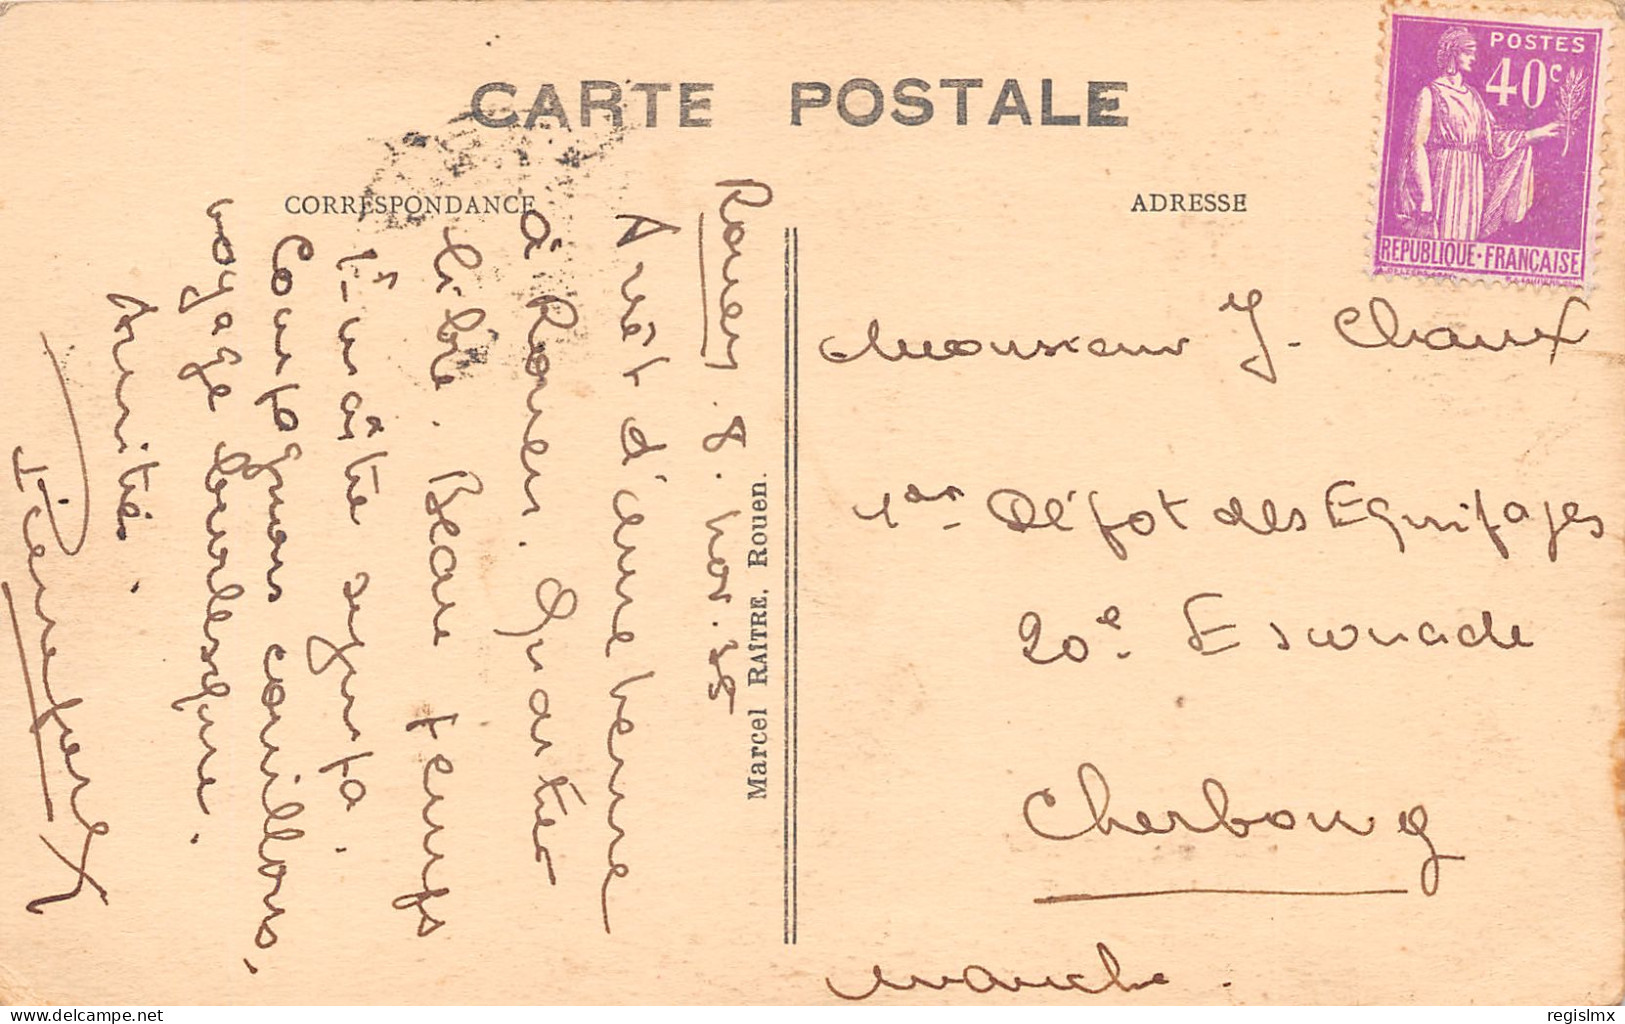 CARTE POSTALE
CORRESPONDANCE
ADRESSE
POSTES
40c
REPUBLIQUE·FRANÇAISE
Rouen. 8. nov. 35
Arrêt d'une heure
à Rouen. Quartier
libre. Beau temps
sympa.
Compagnons couillons,
voyage burlesque.
Amitiés.
Marcel RAITRE, Rouen.
Monsieur J. Chaux
1er Dépôt des Equipages
20e Escouade
Cherbourg
Manche.
delcampe.net
regislmx